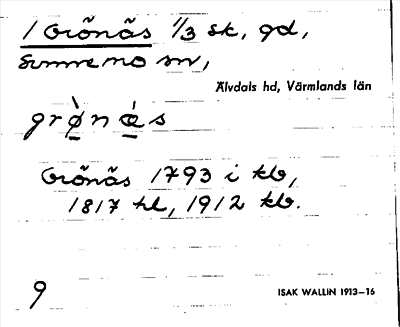 1 Grönäs 1/3 sk, gd,
Sunnemo sn,
Älvdals hd, Värmlands län
grø̀n æ̀ s
Grönäs 1793 i kb,
1817 hl, 1912 kb.
9
ISAK WALLIN 1913–16